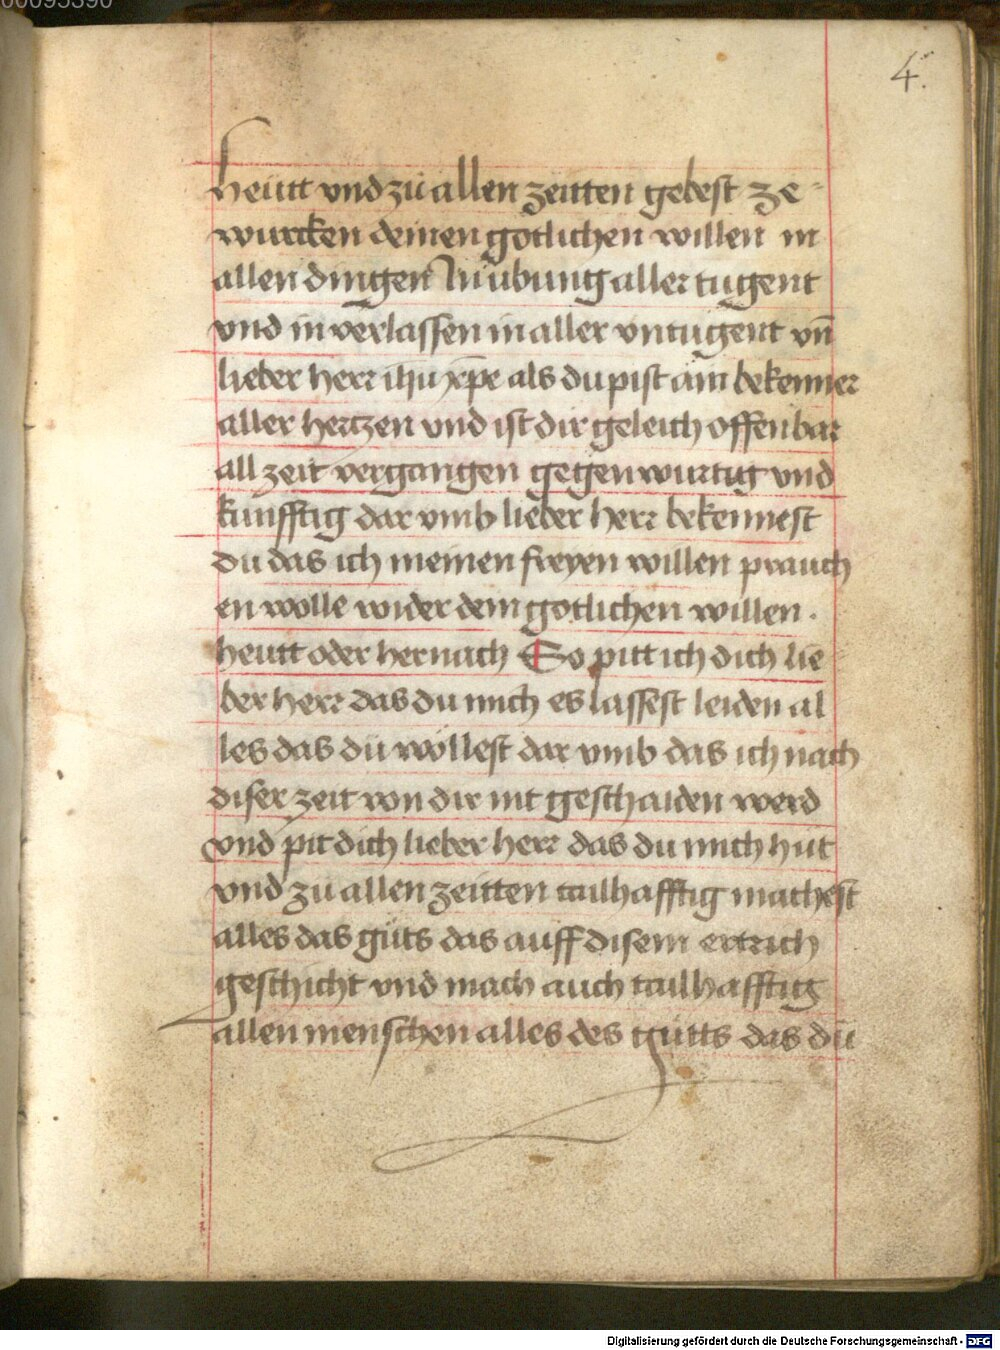 00095390
4.
heütt vnd zü allen zeitten gebest ze-
wurcken deinen gotlichen willen in
allen dingen In ubung aller tugent
vnd in verlassen in aller vntugent vn̄
lieber herr ihu xp̄e als du pist ain bekenner
aller hertzen vnd ist dir geleich offenbar
all zeit vergangen gegenwurtig vnd
kunfftig dar vmb lieber herr bekennest
du das ich meinen freyen willen prauch
en wolle wider dein gotlichen willen.
heutt oder hernach So pitt ich dich lie
ber herr das du mich es lassest leiden al
les das dü wöllest dar vmb das ich nach
diser zeit von dir nit geschaiden werd
vnd pit dich lieber herr das du mich hüt
vnd zu allen zeitten tailhafftig machest
alles das güts das auff disem ertrich
geschicht vnd mach auch tailhafftig
allen menschen alles des gütts das dü
Digitalisierung gefördert durch die Deutsche Forschungsgemeinschaft - DFG